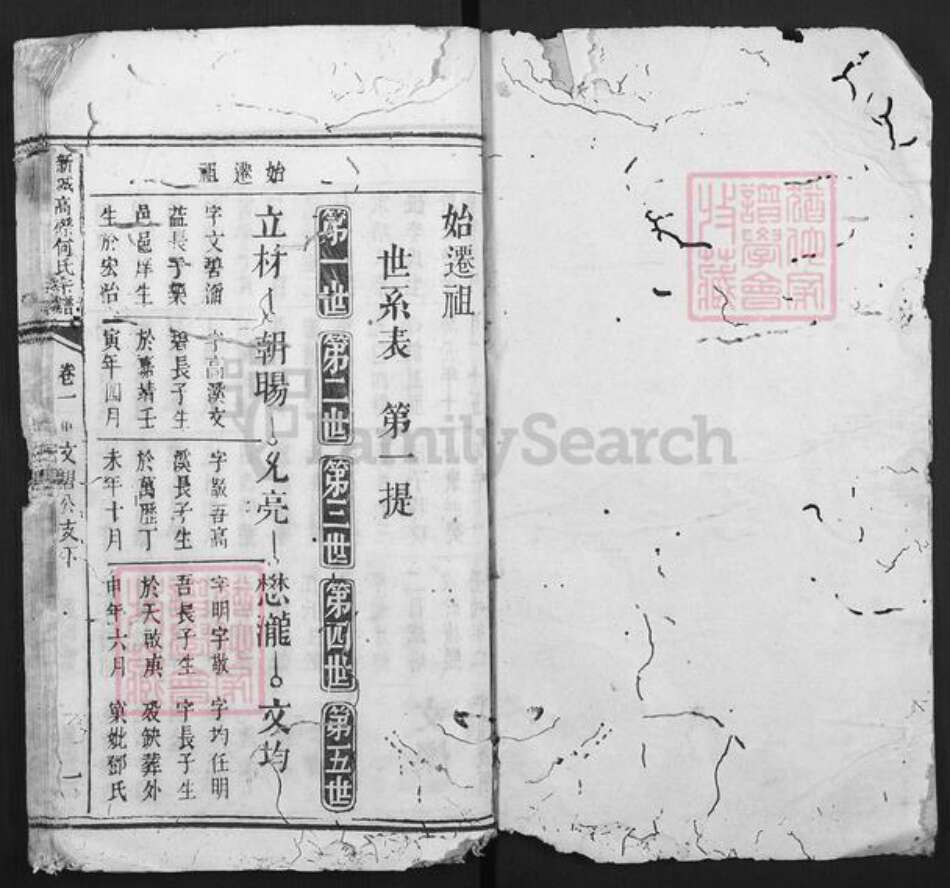 始遷祖
世系表　第一提
第一世　第二世　第三世　第四世　第五世
始遷祖
立材　朝暘　兆亮　懋瀧　文均
字文碧瀰
益長子榮
邑邑庠生
生於宏治
字高溪文
碧長子生
於嘉靖壬
寅年四月
字敬吾高
溪長子生
於萬歷丁
未年十月
字明宇敬
吾長子生
於天啟庚
申年六月
字均任明
宇長子生
歿缺葬外
窠妣鄧氏
何氏宗譜
卷一
文碧公支下
一
譜學會
收藏
FamilySearch